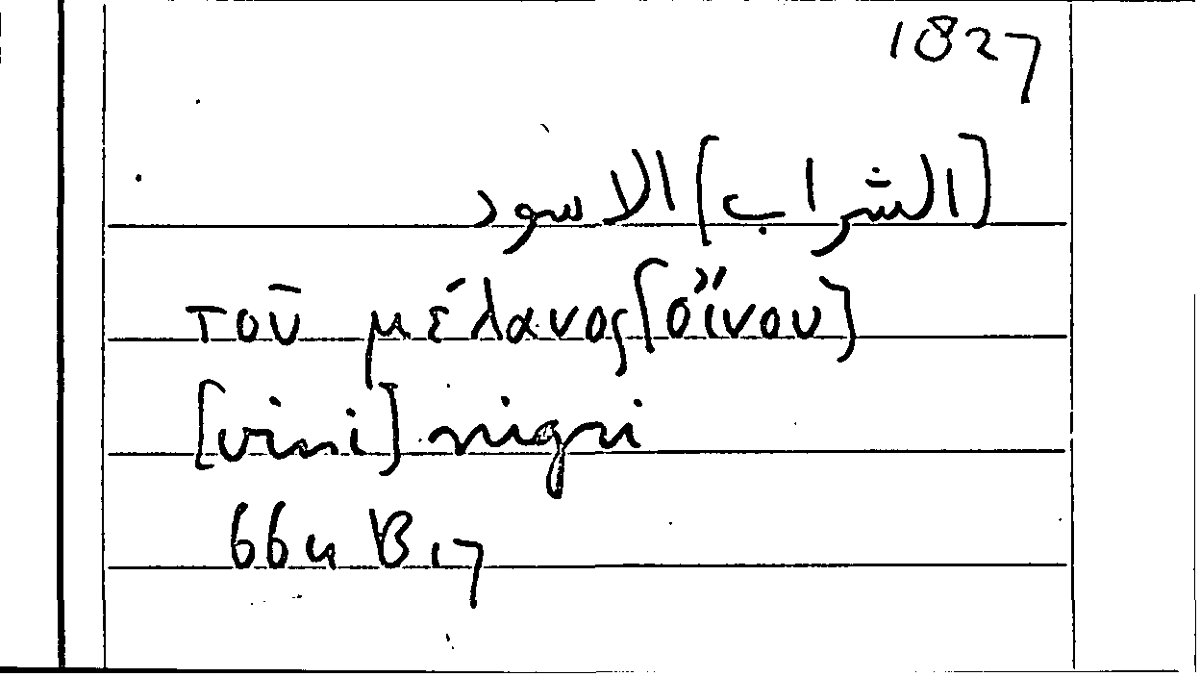 1827
[الشراب] الاسود
τοῦ μέλανος [οἴνου]
[vini] nigri
664 B 17